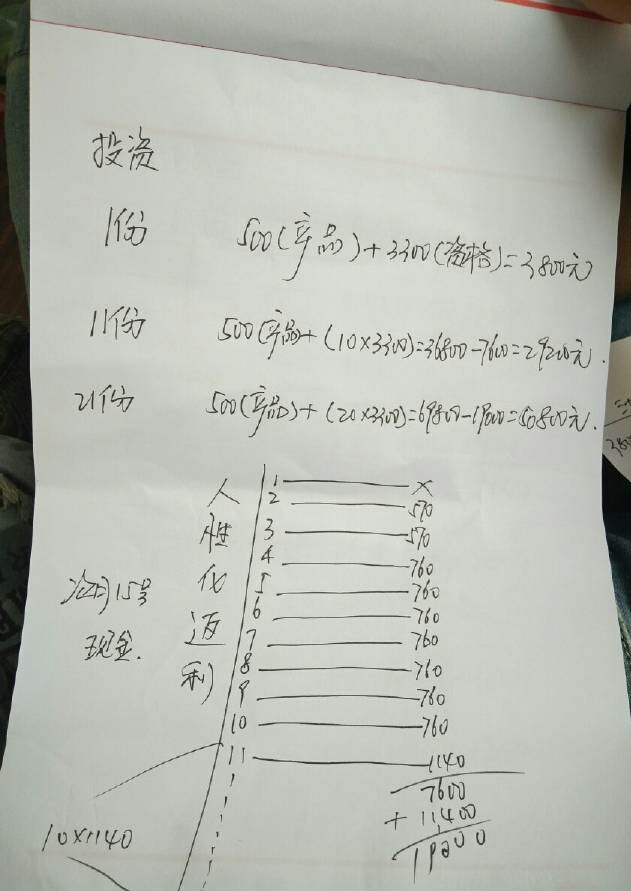 投资
1份 500(产品)+3300(资格)=3800元
11份 500(产品+(10×3300)=36800-7600=29200元.
21份 500(产品)+(20×3300)=69800-19000=50800元.
人性化返利
次月15号
现金.
1 ×
2 570
3 570
4 760
5 760
6 760
7 760
8 760
9 760
10 760
11 1140
7600
+ 11,400
19000
10×1140